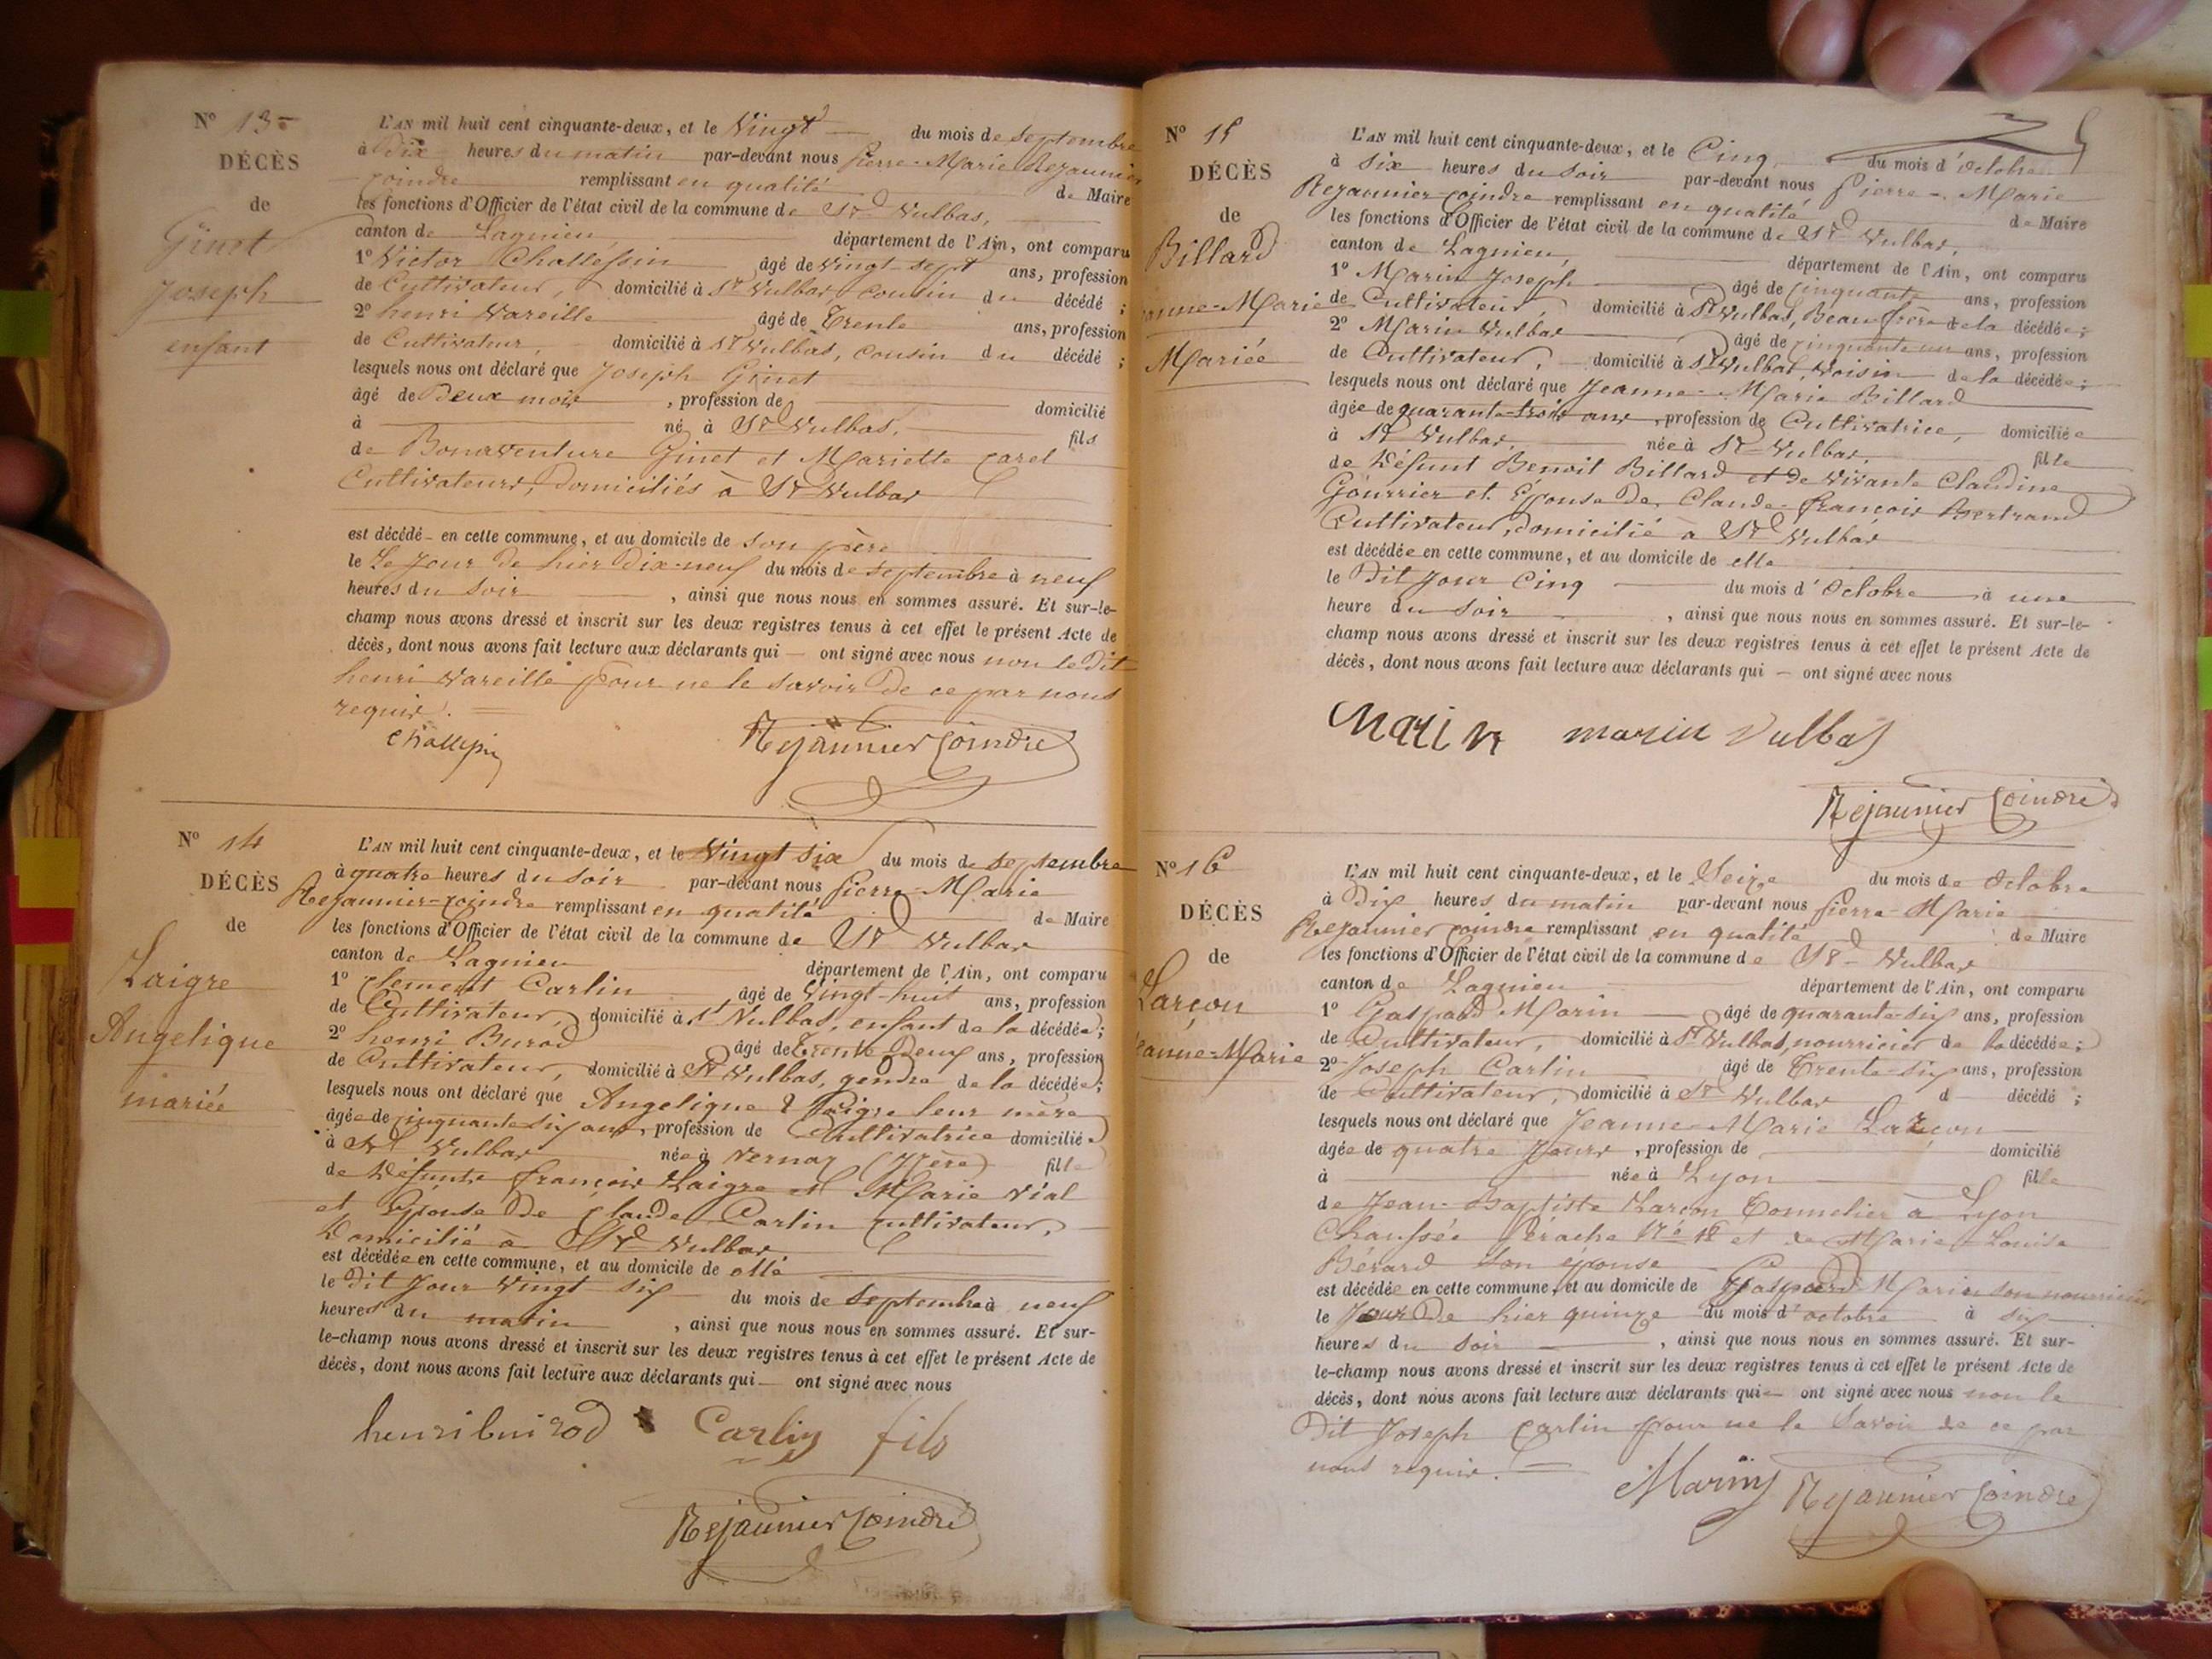 N° 13
DÉCÈS
de
Ginet
Joseph
enfant
L'AN mil huit cent cinquante-deux, et le Vingt du mois de septembre
à Dix heures du matin par-devant nous Pierre-Marie Rejaunier
Coindre remplissant en qualité de Maire
les fonctions d'Officier de l'état civil de la commune de St Vulbas,
canton de Lagnieu département de l'Ain, ont comparu
1° Victor Challessin âgé de vingt sept ans, profession
de Cultivateur, domicilié à St Vulbas cousin du décédé ;
2° henri Vareille âgé de Trente ans, profession
de Cultivateur, domicilié à St Vulbas, cousin du décédé ;
lesquels nous ont déclaré que Joseph Ginet
âgé de Deux mois , profession de domicilié
à né à St Vulbas. fils
de Bonaventure Ginet et Mariette Carel
Cultivateurs, domiciliés à St Vulbas
est décédé en cette commune, et au domicile de son père
le Le Jour de hier Dix-neuf du mois de septembre à neuf
heures du soir , ainsi que nous nous en sommes assuré. Et sur-le-
champ nous avons dressé et inscrit sur les deux registres tenus à cet effet le présent Acte de
décès, dont nous avons fait lecture aux déclarants qui ont signé avec nous non le Dit
henri Vareille pour ne le savoir De ce par nous
requis.
Challesin Rejaunier Coindre
N° 14
DÉCÈS
de
Laigre
Angelique
mariée
L'AN mil huit cent cinquante-deux, et le Vingt six du mois de septembre
à quatre heures du soir par-devant nous Pierre-Marie
Rejaunier-Coindre remplissant en qualité de Maire
les fonctions d'Officier de l'état civil de la commune de St Vulbas
canton de Lagnieu département de l'Ain, ont comparu
1° Clement Carlin âgé de Vingt-huit ans, profession
de Cultivateur, domicilié à St Vulbas, enfant de la décédée ;
2° henri Burod âgé de Trente Deux ans, profession
de Cultivateur, domicilié à St Vulbas, gendre de la décédée ;
lesquels nous ont déclaré que Angelique Laigre leur mère
âgée de cinquante six ans, profession de Cultivatrice domiciliée
à St Vulbas née à Vernas (Isère) fille
de Défunts françois Laigre et Marie Vial
et Epouse De Claude Carlin cultivateur,
Domicilié à St Vulbas.
est décédée en cette commune, et au domicile de elle
le Dit Jour Vingt six du mois de Septembre à neuf
heures du matin , ainsi que nous nous en sommes assuré. Et sur-
le-champ nous avons dressé et inscrit sur les deux registres tenus à cet effet le présent Acte de
décès, dont nous avons fait lecture aux déclarants qui ont signé avec nous
henri buirod Carlin fils
Rejaunier Coindre
N° 15
DÉCÈS
de
Billard
anne-Marie
Mariée
L'AN mil huit cent cinquante-deux, et le Cinq du mois d'octobre
à six heures du soir par-devant nous Pierre-Marie
Rejaunier-Coindre remplissant en qualité de Maire
les fonctions d'Officier de l'état civil de la commune de St Vulbas,
canton de Lagnieu, département de l'Ain, ont comparu
1° Marin Joseph âgé de cinquante ans, profession
de Cultivateur, domicilié à St Vulbas, Beau frère de la décédée ;
2° Marin Vulbas âgé de cinquante un ans, profession
de Cultivateur, domicilié à St Vulbas, Voisin de la décédée ;
lesquels nous ont déclaré que Jeanne-Marie Billard
âgée de quarante-trois ans, profession de Cultivatrice, domiciliée
à St Vulbas, née à St Vulbas, fille
de Défunt Benoit Billard et de vivante Claudine
Gourrier et Épouse De Claude-françois Bertrand
Cultivateur, domicilié à St Vulbas
est décédée en cette commune, et au domicile de elle
le Dit Jour Cinq du mois d'Octobre à une
heure du soir , ainsi que nous nous en sommes assuré. Et sur-le-
champ nous avons dressé et inscrit sur les deux registres tenus à cet effet le présent Acte de
décès, dont nous avons fait lecture aux déclarants qui ont signé avec nous
Marin marin Vulbas
Rejaunier Coindre
N° 16
DÉCÈS
de
Larçon
eanne-Marie
L'AN mil huit cent cinquante-deux, et le Seize du mois de Octobre
à Dix heures du matin par-devant nous Pierre-Marie
Rejaunier Coindre remplissant en qualité de Maire
les fonctions d'Officier de l'état civil de la commune de St Vulbas
canton de Lagnieu département de l'Ain, ont comparu
1° Gaspard Marin âgé de quarante-six ans, profession
de Cultivateur, domicilié à St Vulbas, nourricier de la décédée ;
2° Joseph Carlin âgé de Trente-six ans, profession
de Cultivateur, domicilié à St Vulbas d décédé ;
lesquels nous ont déclaré que Jeanne-Marie Larçon
âgée de quatre Jours , profession de domicilié
à née à Lyon fille
de Jean-Baptiste Larçon Tonnelier à Lyon
Chaussée Pérache N° 18 et de Marie-Louise
Bérard son épouse
est décédée en cette commune, et au domicile de Gaspard Marin son nourricier
le Jour De hier quinze du mois d'octobre à six
heures du soir , ainsi que nous nous en sommes assuré. Et sur-
le-champ nous avons dressé et inscrit sur les deux registres tenus à cet effet le présent Acte de
décès, dont nous avons fait lecture aux déclarants qui ont signé avec nous non le
Dit Joseph Carlin pour ne le Savoir de ce par
nous requis.
Marin Rejaunier Coindre